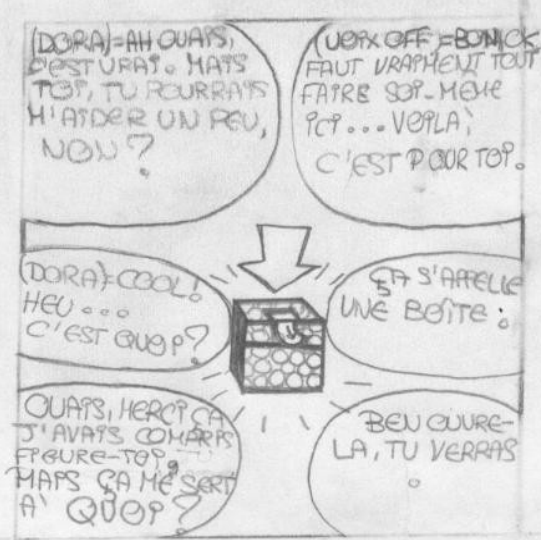 (DORA)=AH OUAIS,
C'EST VRAI. MAIS
TOI, TU POURRAIS
M'AIDER UN PEU,
NON ?
(VOIX OFF)=BON, OK
FAUT VRAIMENT TOUT
FAIRE SOI-MEME
ICI... VOILA,
C'EST POUR TOI.
(DORA)=COOL!
HEU...
C'EST QUOI ?
ÇA S'APPELLE
UNE BOÎTE.
OUAIS, MERCI ÇA
J'AVAIS COMPRIS
FIGURE-TOI,
MAIS ÇA ME SERT
A' QUOI ?
BEN OUVRE-
LA, TU VERRAS
.